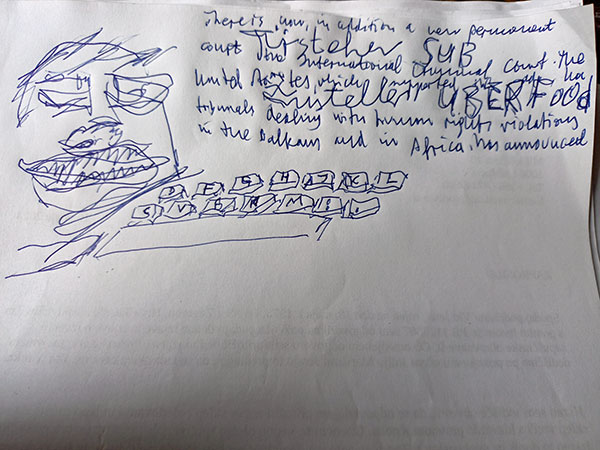 There is, now, in addition a new permanent
Türsteher SUB
court the International Criminal Court. The
United States, which supported the
Zusteller UBERFOOd
tribunals dealing with human rights violations
in the Balkans and in Africa, has announced
D F G H J K L
V B N M